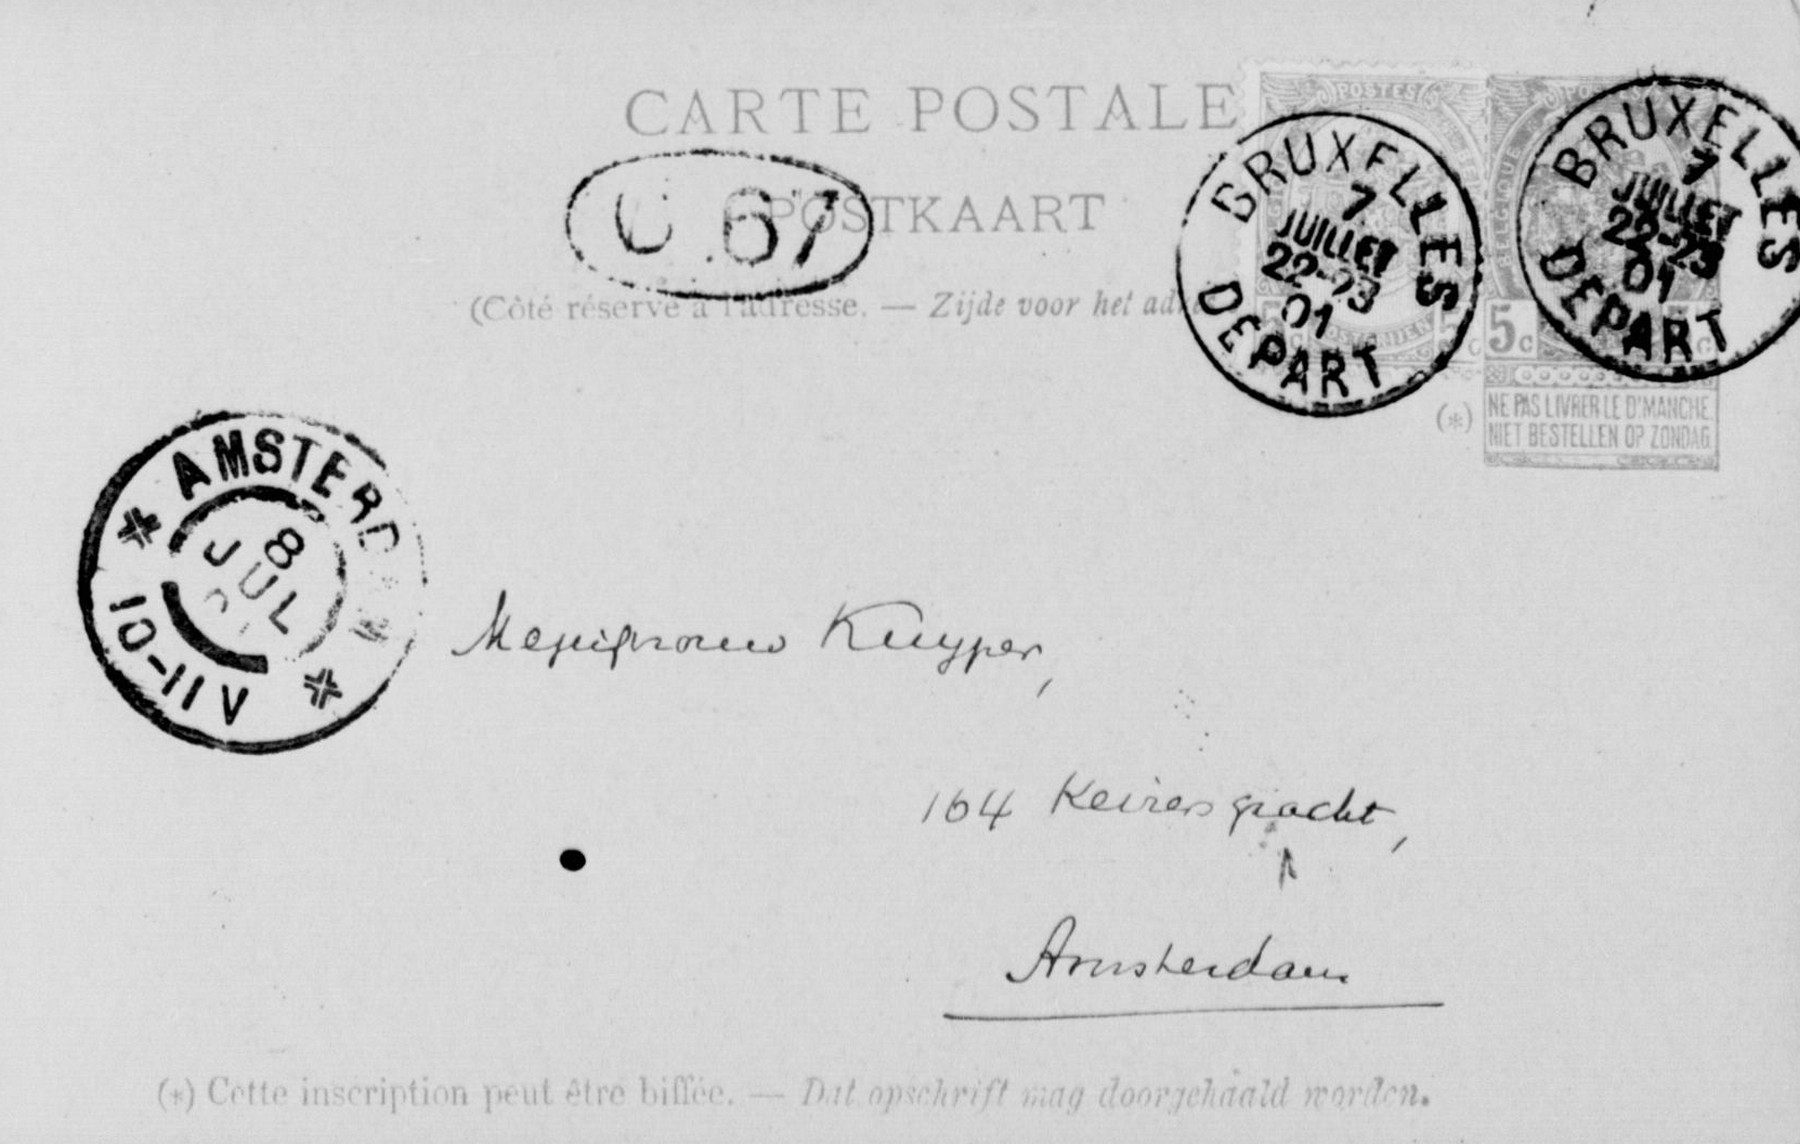 CARTE POSTALE
POSTKAART
C 67
(Côté réservé à l'adresse. — Zijde voor het adr
POSTES
BRUXELLES
7
JUILLET
22-23
01
DEPART
BELGIQUE
BRUXELLES
7
JUILLET
22-23
01
DEPART
5c
(*)
NE PAS LIVRER LE DIMANCHE.
NIET BESTELLEN OP ZONDAG.
AMSTERDAM
8
JUL
10-11 V
Mejufvrouw Kuyper,
164 Keizersgracht,
Amsterdam
(*) Cette inscription peut être biffée. — Dat opschrift mag doorgehaald worden.